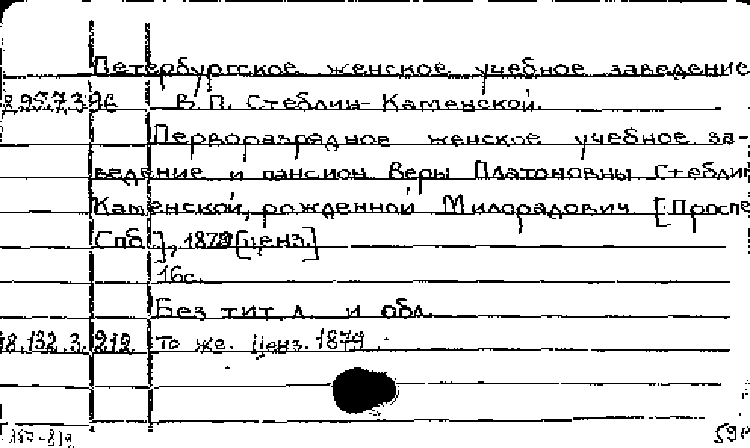 Петербургское женское учебное заведение
В.П. Стеблин-Каменской.
Перворазрядное женское учебное за-
ведение и пансион Веры Платоновны Стеблин
Каменской, рожденной Милорадович [Проспе
Спб.], [ценз.]
16 с.
Без тит. л. и обл.
18.132.3.212 То же. Ценз. 1879.